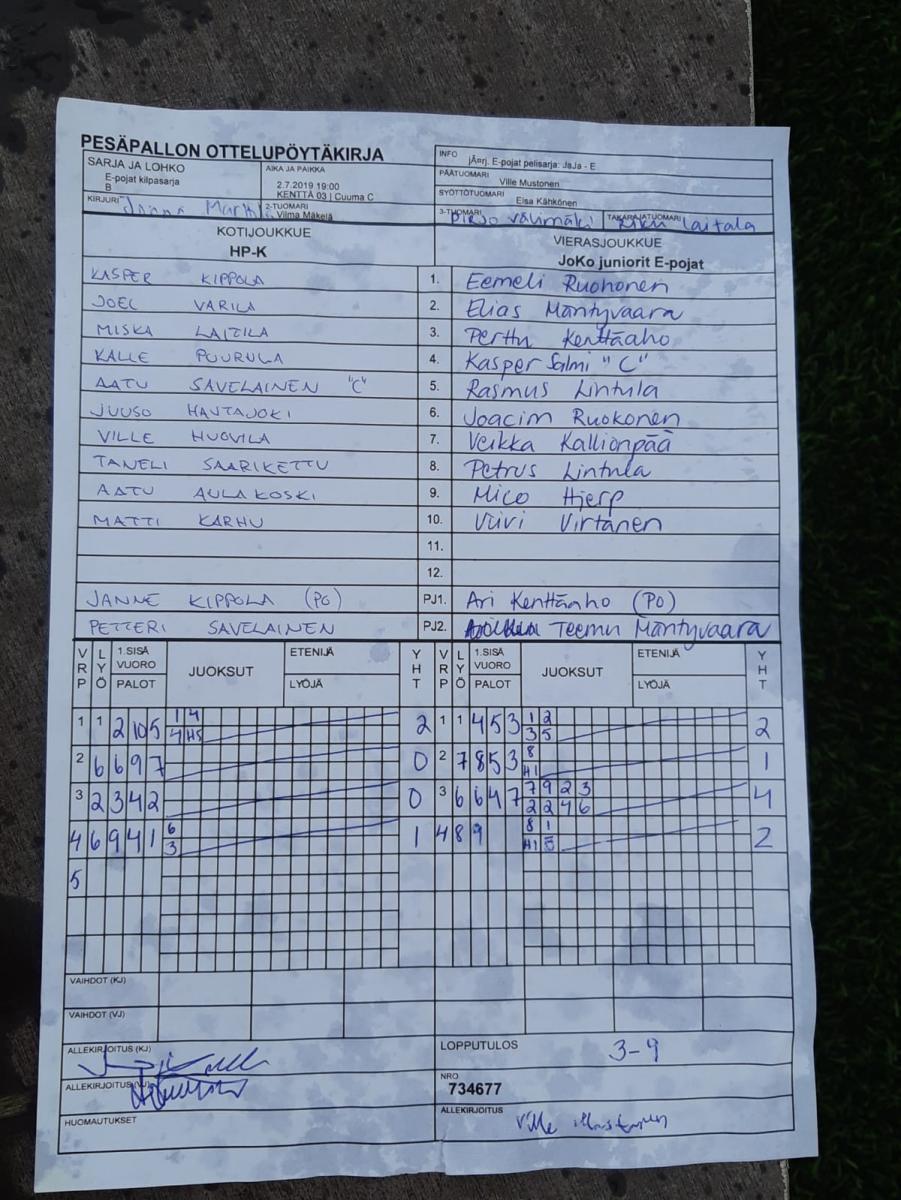 PESÄPALLON OTTELUPÖYTÄKIRJA
SARJA JA LOHKO
E-pojat kilpasarja
B
AIKA JA PAIKKA
2.7.2019 19:00
KENTTÄ 03 | Cuuma C
INFO
jÄnrj. E-pojat pelisarja: JaJa - E
PÄÄTUOMARI
Ville Mustonen
SYÖTTÖTUOMARI
Elsa Kähkönen
KIRJURI
2-TUOMARI
Vilma Mäkelä
3-TUOMARI
Pirjo Välimäki
TAKARAJATUOMARI
Laitala
KOTIJOUKKUE
HP-K
VIERASJOUKKUE
JoKo juniorit E-pojat
KASPER KIPPOLA 1. Eemeli Ruohonen
JOEL VARILA 2. Elias Mäntyvaara
MISKA LAITILA 3. Perttu Kenttäaho
KALLE PUURULA 4. Kasper Salmi "C"
AATU SAVELAINEN "C" 5. Rasmus Lintula
JUUSO HAUTAJOKI 6. Joacim Ruokonen
VILLE HUOVILA 7. Veikka Kallionpää
TANELI SAARIKETTU 8. Petrus Lintula
AATU AULAKOSKI 9. Mico Hjerp
MATTI KARHU 10. Viivi Virtanen
11.
12.
JANNE KIPPOLA (PO) PJ1. Ari Kenttäaho (PO)
PETTERI SAVELAINEN PJ2. Teemu Mäntyvaara
VRP LYÖ 1.SISÄ VUORO PALOT JUOKSUT ETENIJÄ LYÖJÄ YHT VRP LYÖ 1.SISÄ VUORO PALOT JUOKSUT ETENIJÄ LYÖJÄ YHT
1 1 2 10 5 1 4 2 1 1 4 5 3 1 2 2
4 H5 3 5
2 6 6 9 7 0 2 7 8 5 3 8 1
H1
3 2 3 4 2 0 3 6 6 4 7 7 9 2 3 4
2 2 4 6
4 6 9 4 1 6 1 4 8 9 8 1 2
3 H1 5
5
VAIHDOT (KJ)
VAIHDOT (VJ)
ALLEKIRJOITUS (KJ)
LOPPUTULOS 3-9
ALLEKIRJOITUS (VJ)
NRO
734677
HUOMAUTUKSET
ALLEKIRJOITUS
Ville Mustonen